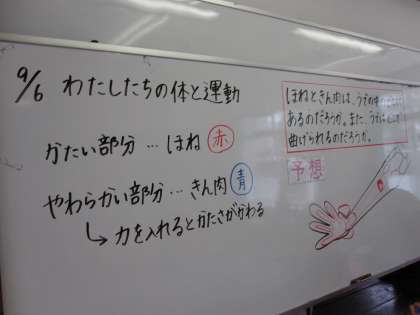 9/6 わたしたちの体と運動
かたい部分…ほね 赤
やわらかい部分…きん肉 青
↳力を入れるとかたさがかわる
ほねときん肉は、うでの中
あるのだろうか。また、うでは
曲げられるのだろうか。
予想